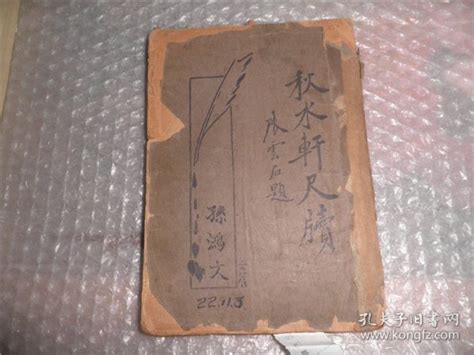 秋水軒尺牘
孫鴻文
22.11.3
孔夫子旧书网
www.kongfz.com